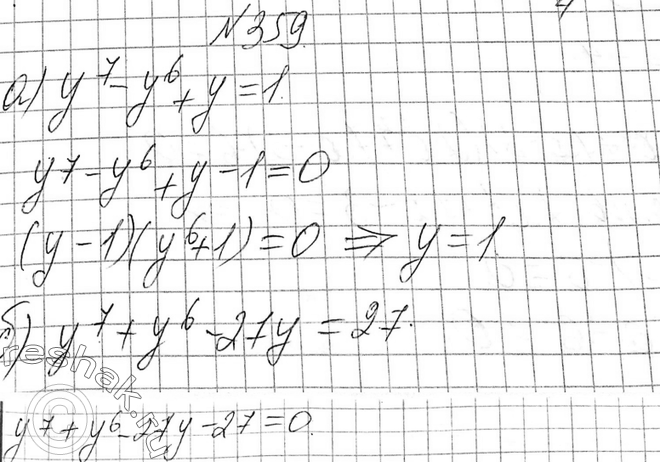 №359.
а) y⁷-y⁶+y=1.
y⁷-y⁶+y-1=0
(y-1)(y⁶+1)=0 ⇒ y=1.
б) y⁷+y⁶-27y=27.
y⁷+y⁶-27y-27=0.
reshak.ru